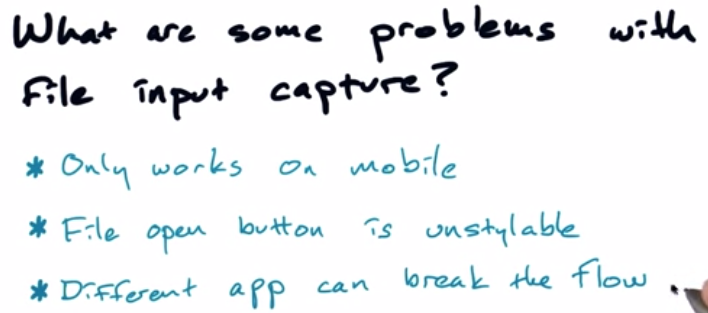 What are some problems with
file input capture?
* Only works on mobile
* File open button is unstylable
* Different app can break the flow